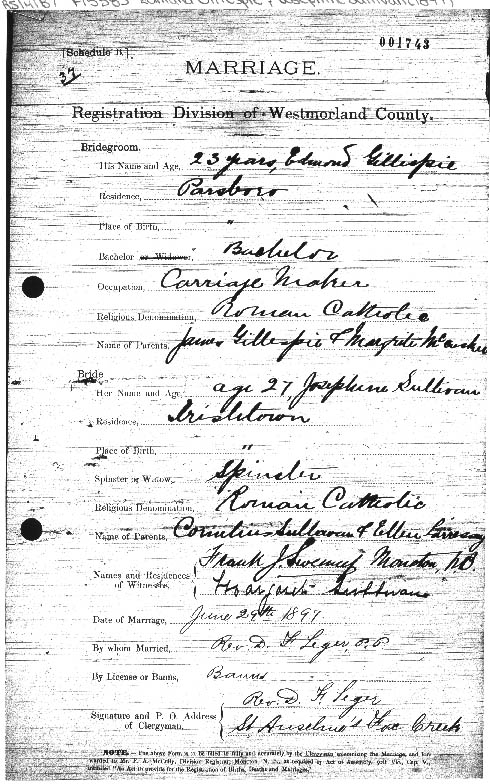 001743
[Schedule B.]
37
MARRIAGE.
Registration Division of Westmorland County.
Bridegroom.
His Name and Age, 23 years, Edmond Gillespie
Residence, Parsboro
Place of Birth, "
Bachelor or Widower, Bachelor
Occupation, Carriage Maker
Religious Denomination, Roman Catholic
Name of Parents, James Gillespie & Margrite
Bride
Her Name and Age, age 27, Josephine Sullivan
Residence, Irishtown
Place of Birth, "
Spinster or Widow, Spinster
Religious Denomination, Roman Catholic
Name of Parents, Cornelius Sullivan & Ellen
Names and Residences of Witnesses. Frank J. Sweeney Moncton, NB
Margarite Sullivan
Date of Marriage, June 29th 1897
By whom Married, Rev. D. F. Leger, P.P.
By License or Banns, Banns
Signature and P. O. Address of Clergyman, Rev. D. F. Leger
St Anselme's Fox Creek
NOTE.—The above Form is to be filled in fully and accurately by the Clergyman solemnizing the Marriage, and forwarded to Mr. F. A. McCully, Division Registrar, Moncton, N. B., as required by Act of Assembly,
entitled "An Act to provide for the Registration of Births, Deaths and Marriages."